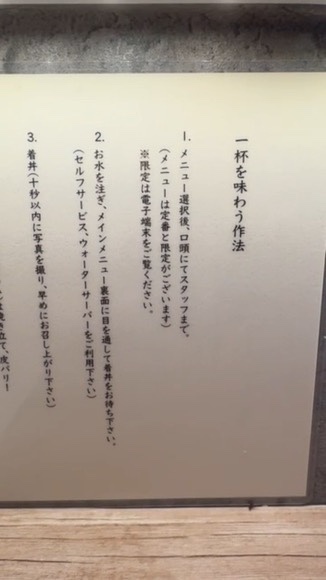 一杯を味わう作法
1. メニュー選択後、口頭にてスタッフまで。
(メニューは定番と限定がございます)
※限定は電子端末をご覧ください。
2. お水を注ぎ、メインメニュー裏面に目を通して着丼をお待ち下さい。
(セルフサービス、ウォーターサーバーをご利用下さい)
3. 着丼(十秒以内に写真を撮り、早めにお召し上がり下さい)
き立て、皮パリー